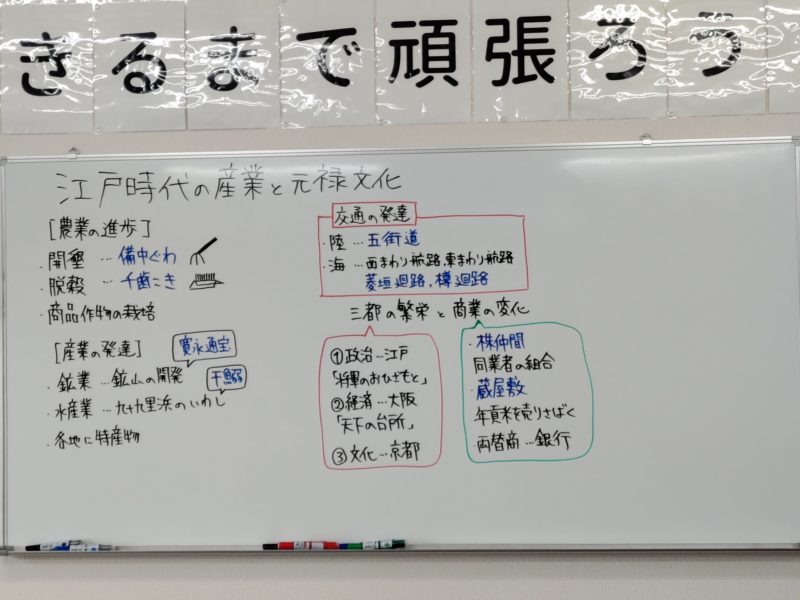 きるまで頑張ろう
江戸時代の産業と元禄文化
[農業の進歩]
・開墾…備中ぐわ
・脱穀…千歯こき
・商品作物の栽培
[産業の発達]
寛永通宝
・鉱業…鉱山の開発
干鰯
・水産業…九十九里浜のいわし
・各地に特産物
交通の発達
・陸…五街道
・海…西まわり航路,東まわり航路
菱垣廻路,樽廻路
三都の繁栄と商業の変化
①政治…江戸
「将軍のおひざもと」
②経済…大阪
「天下の台所」
③文化…京都
・株仲間
同業者の組合
・蔵屋敷
年貢米を売りさばく
・両替商…銀行